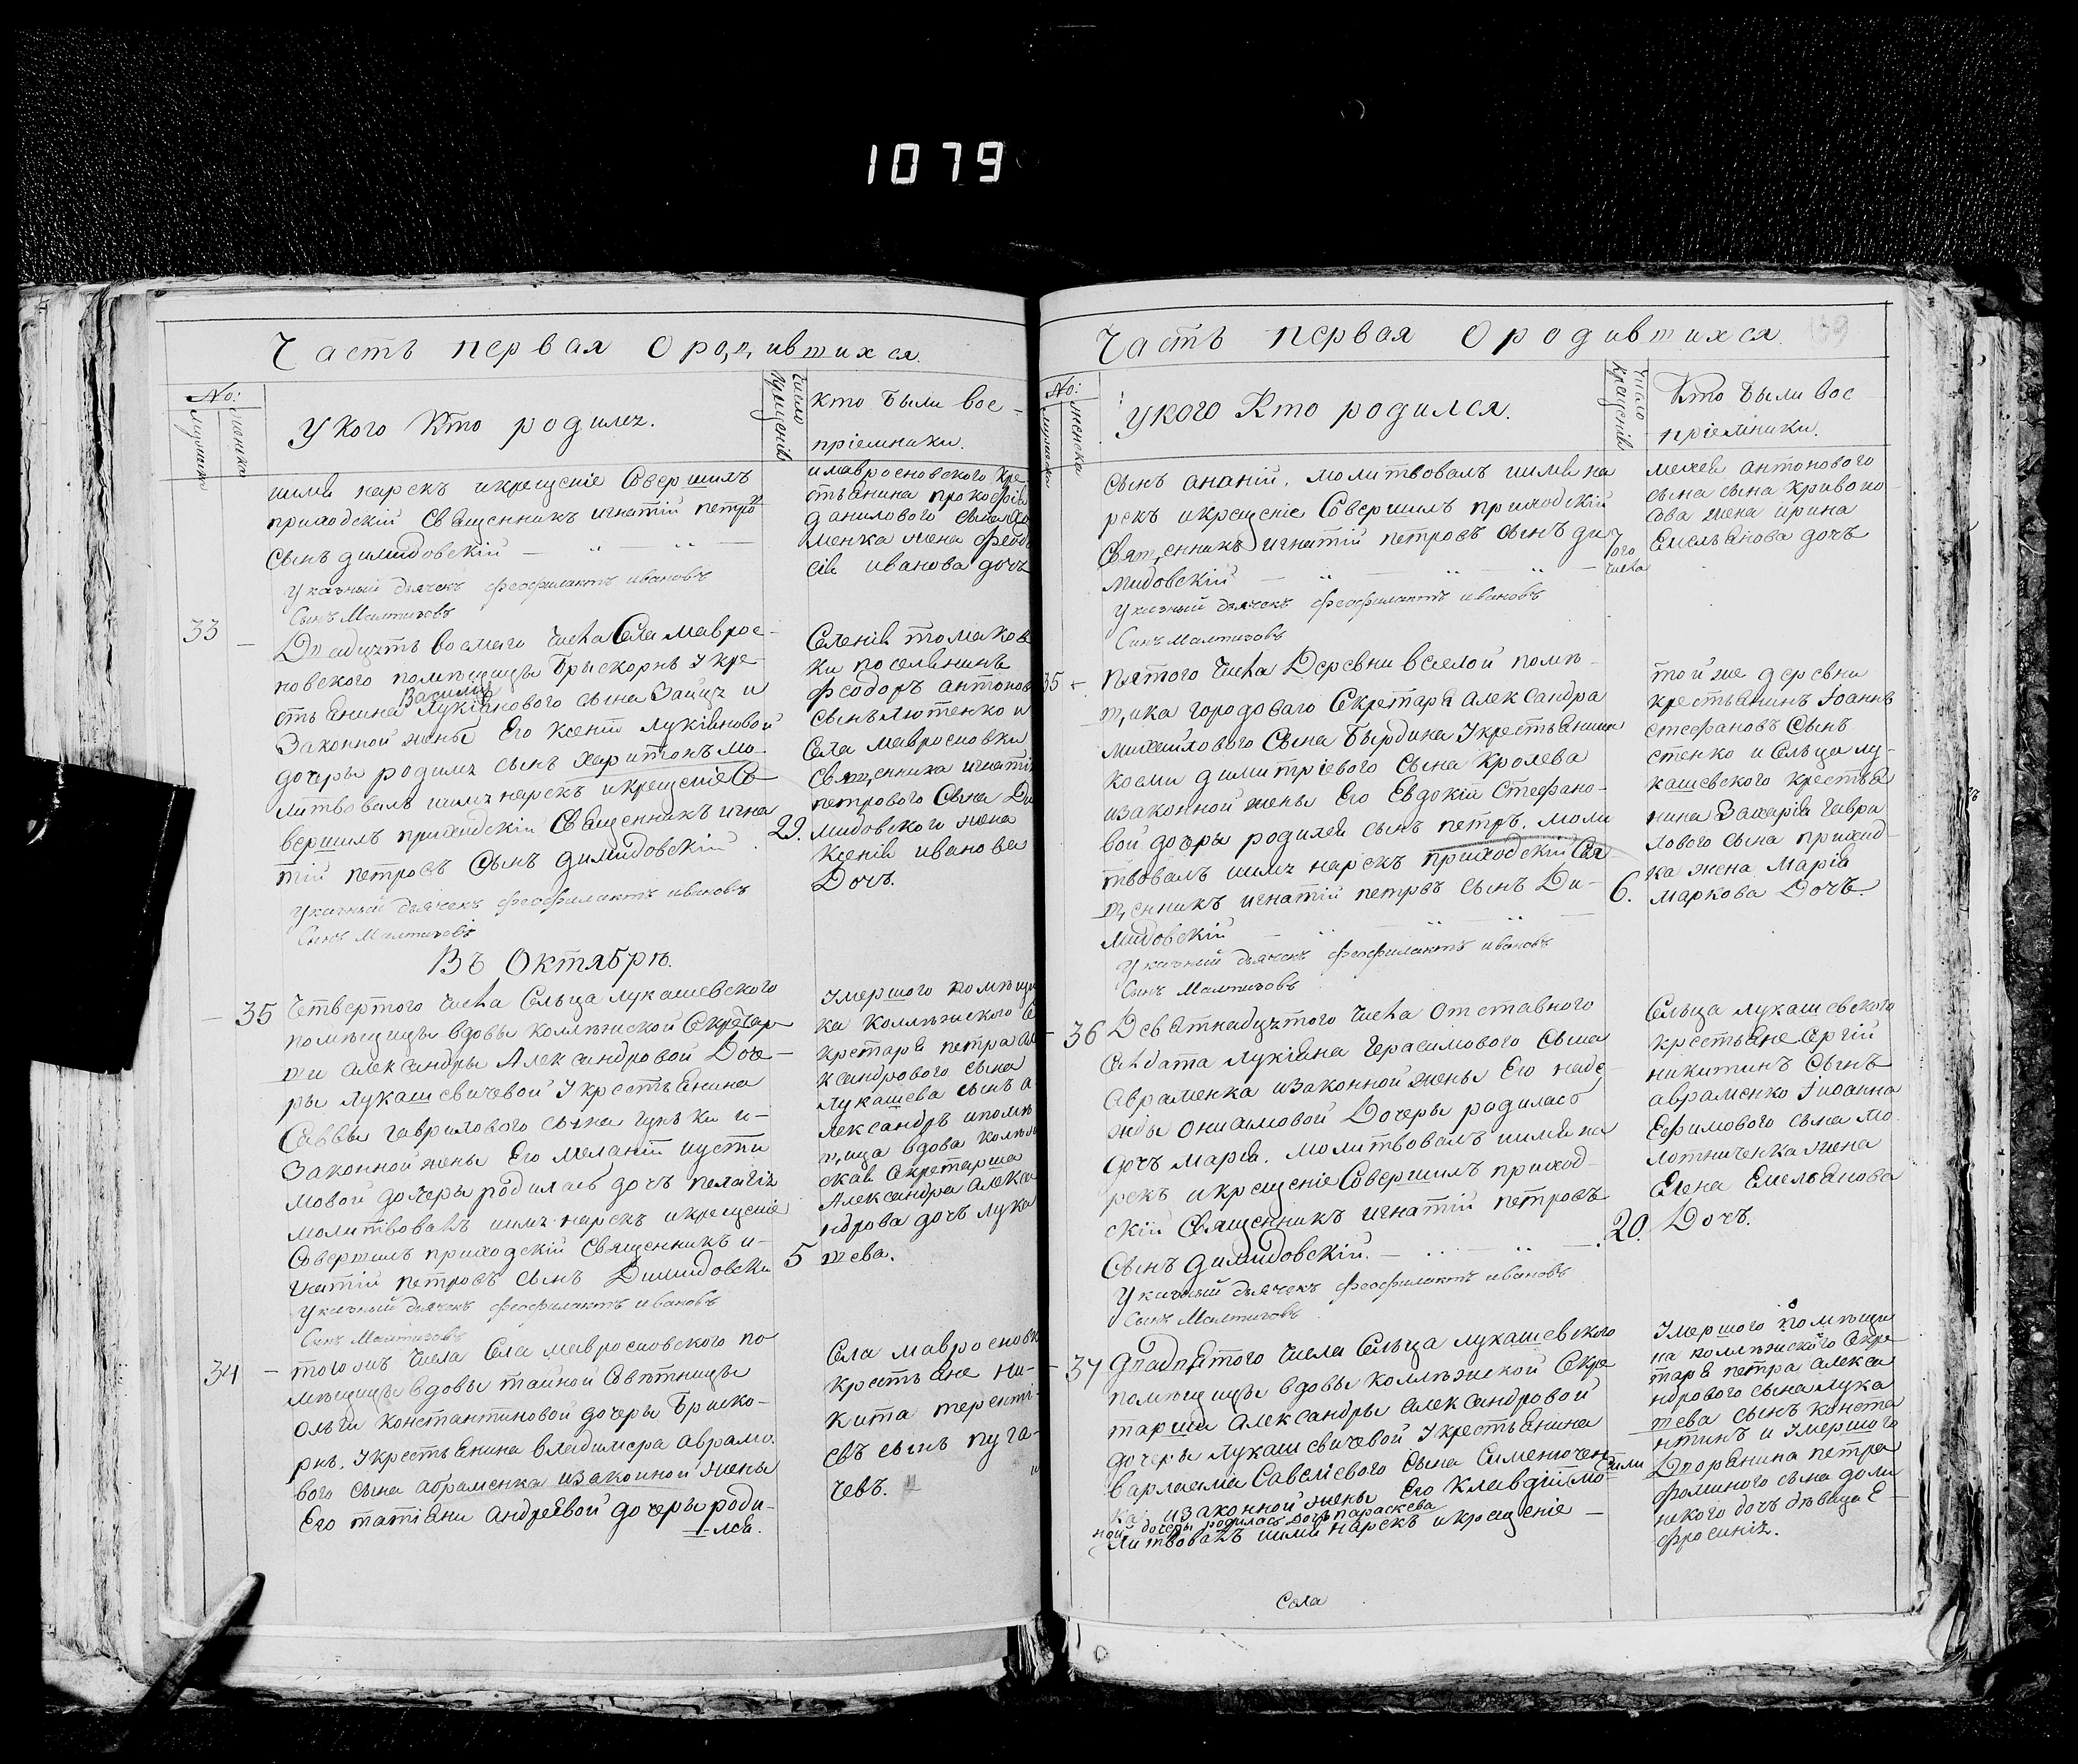 1079
Часть первая О родившихся.
No:
мужеска
женска
У кого Кто родилъ.
Число крещенія
Кто были вос-
пріемники.
ними нарекъ и крещеніе Совершилъ
приходскій Священникъ игнатій петро
Сынъ димидовскій — " — " —
Указный дьячекъ феофилактъ ивановъ
Сынъ
имавроеновского кре
стьянина прокофія
данилового сына
менка жена феод
сія иванова дочь
33 —
Двадцать восмаго числа Села маврое-
новского помѣщицы Брискорнъ У кре-
Василія
стьянина Лукіянового сына Зайца и
Законной жены Его Ксеніи лукіяновой
дочеры родилъ сынъ харитонъ мо-
литвовалъ имъ нарекъ и крещеніе Со
вершилъ приходскій Священникъ игна
тій петровъ Сынъ димидовскій
Указный дьячекъ феофилактъ ивановъ
Сынъ
29.
Селенія томаков
ки поселянинъ
феодоръ антонов
сынъ Лютенко и
Села мавроеновки
священника игнатія
петрового Сына Ди
мидовского жена
Ксенія иванова
Дочь.
Въ Октябрѣ.
— 35
Четвертого числа Сельца лукашевского
помѣщицы вдовы коллѣжской Секретар
ши александры Александровой Доче-
ры лукашевичевой У крестьянина
Саввы гаврилового сына гуньки и-
Законной жены Его меланіи иусти
мовой дочеры родилась дочь пелагія
молитвовалъ имъ нарекъ и крещеніе
Совершилъ приходскій священникъ и-
гнатій петровъ сынъ Димидовски
Указный дьячекъ феофилактъ ивановъ
Сынъ
5
Умершого помѣщи
ка коллѣжского Се
кретаря петра але
ксандрового сына
лукашева сынъ а-
лександръ и помѣ
щица вдова коллѣж
ская Секретарша
Александра Алекса
ндрова дочь лука
шева.
34 —
того жъ числа Села мавроеновского по
мѣщицы вдовы тайной Совѣтницы
Ольги константиновой дочеры Бриско-
рнъ. У крестьянина владимера аврамо.
вого сына абраменка и законной жены
Его татіяни андреевой дочеры роди-
лся.
Села мавроеновки
крестьяне Ни-
кита теренті-
евъ сынъ пуга-
чевъ.
Часть первая О родившихся.
No:
мужеска
женска
У кого Кто родился.
Число крещенія
Кто были вос
пріемники.
сынъ ананій. молитвовалъ ними на
рекъ и крещеніе Совершилъ приходскій
Священникъ игнатій петровъ сынъ ди
мидовскій — " — " — " —
Указный дьячекъ феофилактъ ивановъ
Сынъ
7ого числа
сына сына кривоно
сова жена ирина
Емельянова дочь
35 —
пятого числа Деревни веселой помѣ-
щика городоваго Секретаря александра
михайлового Сына Бырдина У крестьянина
косми димитріевого сына кролева
изаконной жены Его Евдокіи Стефано-
вой дочеры родился сынъ петръ. моли
твовалъ имъ нарекъ приходскій Свя
щенникъ игнатій петровъ сынъ Ди-
мидовскій — " — " —
Указный дьячекъ феофилактъ ивановъ
Сынъ
6.
той же деревни
крестьянинъ Іоаннъ
стефановъ Сынъ
стенко и Сельца лу-
кашевского крестья
нина Захарія гавра
лового сына приход-
ка жена Марія
маркова Дочь.
— 36
Девятнадцатого числа Отставного
салдата лукіяна герасимового Сына
авраменка изаконной жены Его наде-
жды онисимовой Дочеры родиласъ
дочь марія. молитвовалъ ними на
рекъ и крещеніе Совершилъ приход-
скій Священникъ игнатій петровъ
Сынъ димидовскій. — " — " —
Указный дьячекъ феофилактъ ивановъ
Сынъ
20.
Сельца лукашевского
крестьяне Сергій
никитинъ Сынъ
авраменко Іиоанна
Ефимового сына мо
лотниченка жена
Елена Емельянова
Дочь.
— 37
Дватпятого числа Сельца лукашевского
помѣщицы вдовы коллѣжской Секре
тарши александры александровой
дочеры лукашевичевой У крестьянина
варлаама Савеліевого Сына Сименючен
ка изаконной жены Его Клавдіи мо-
ной дочеры родилась дочь параскева
литвовалъ ними нарекъ и крещеніе —
Умершого помѣщи
ка коллѣжского Секре
таря петра алекса
ндрового сына лука
шева сынъ конста
нтинъ и Умершого
Дворянина петра
фомина сына доли
нского дочь дѣвица Е
фросинія.
Села